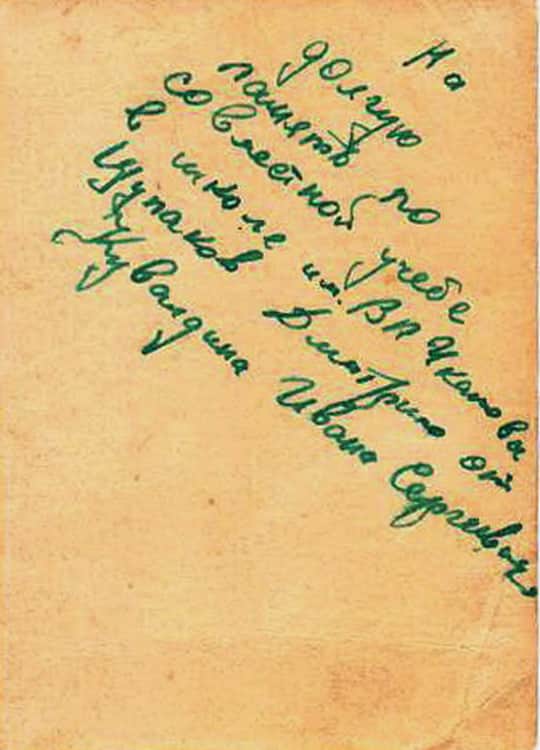 На
долгую
память по
совместной учебе
в школе им. ВП Чкалова
Щупаков Дмитрию от
Кувалдина Ивана Сергеевича